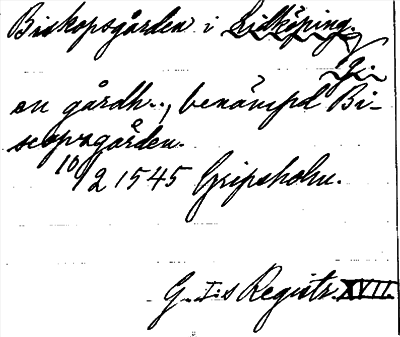 Biskopsgården i Lidköping.
Vg.
en gårdh.., benämpd Bi-
scopsgården.
10/2 1545 Gripsholm.
G. I:s Registr. XVII.